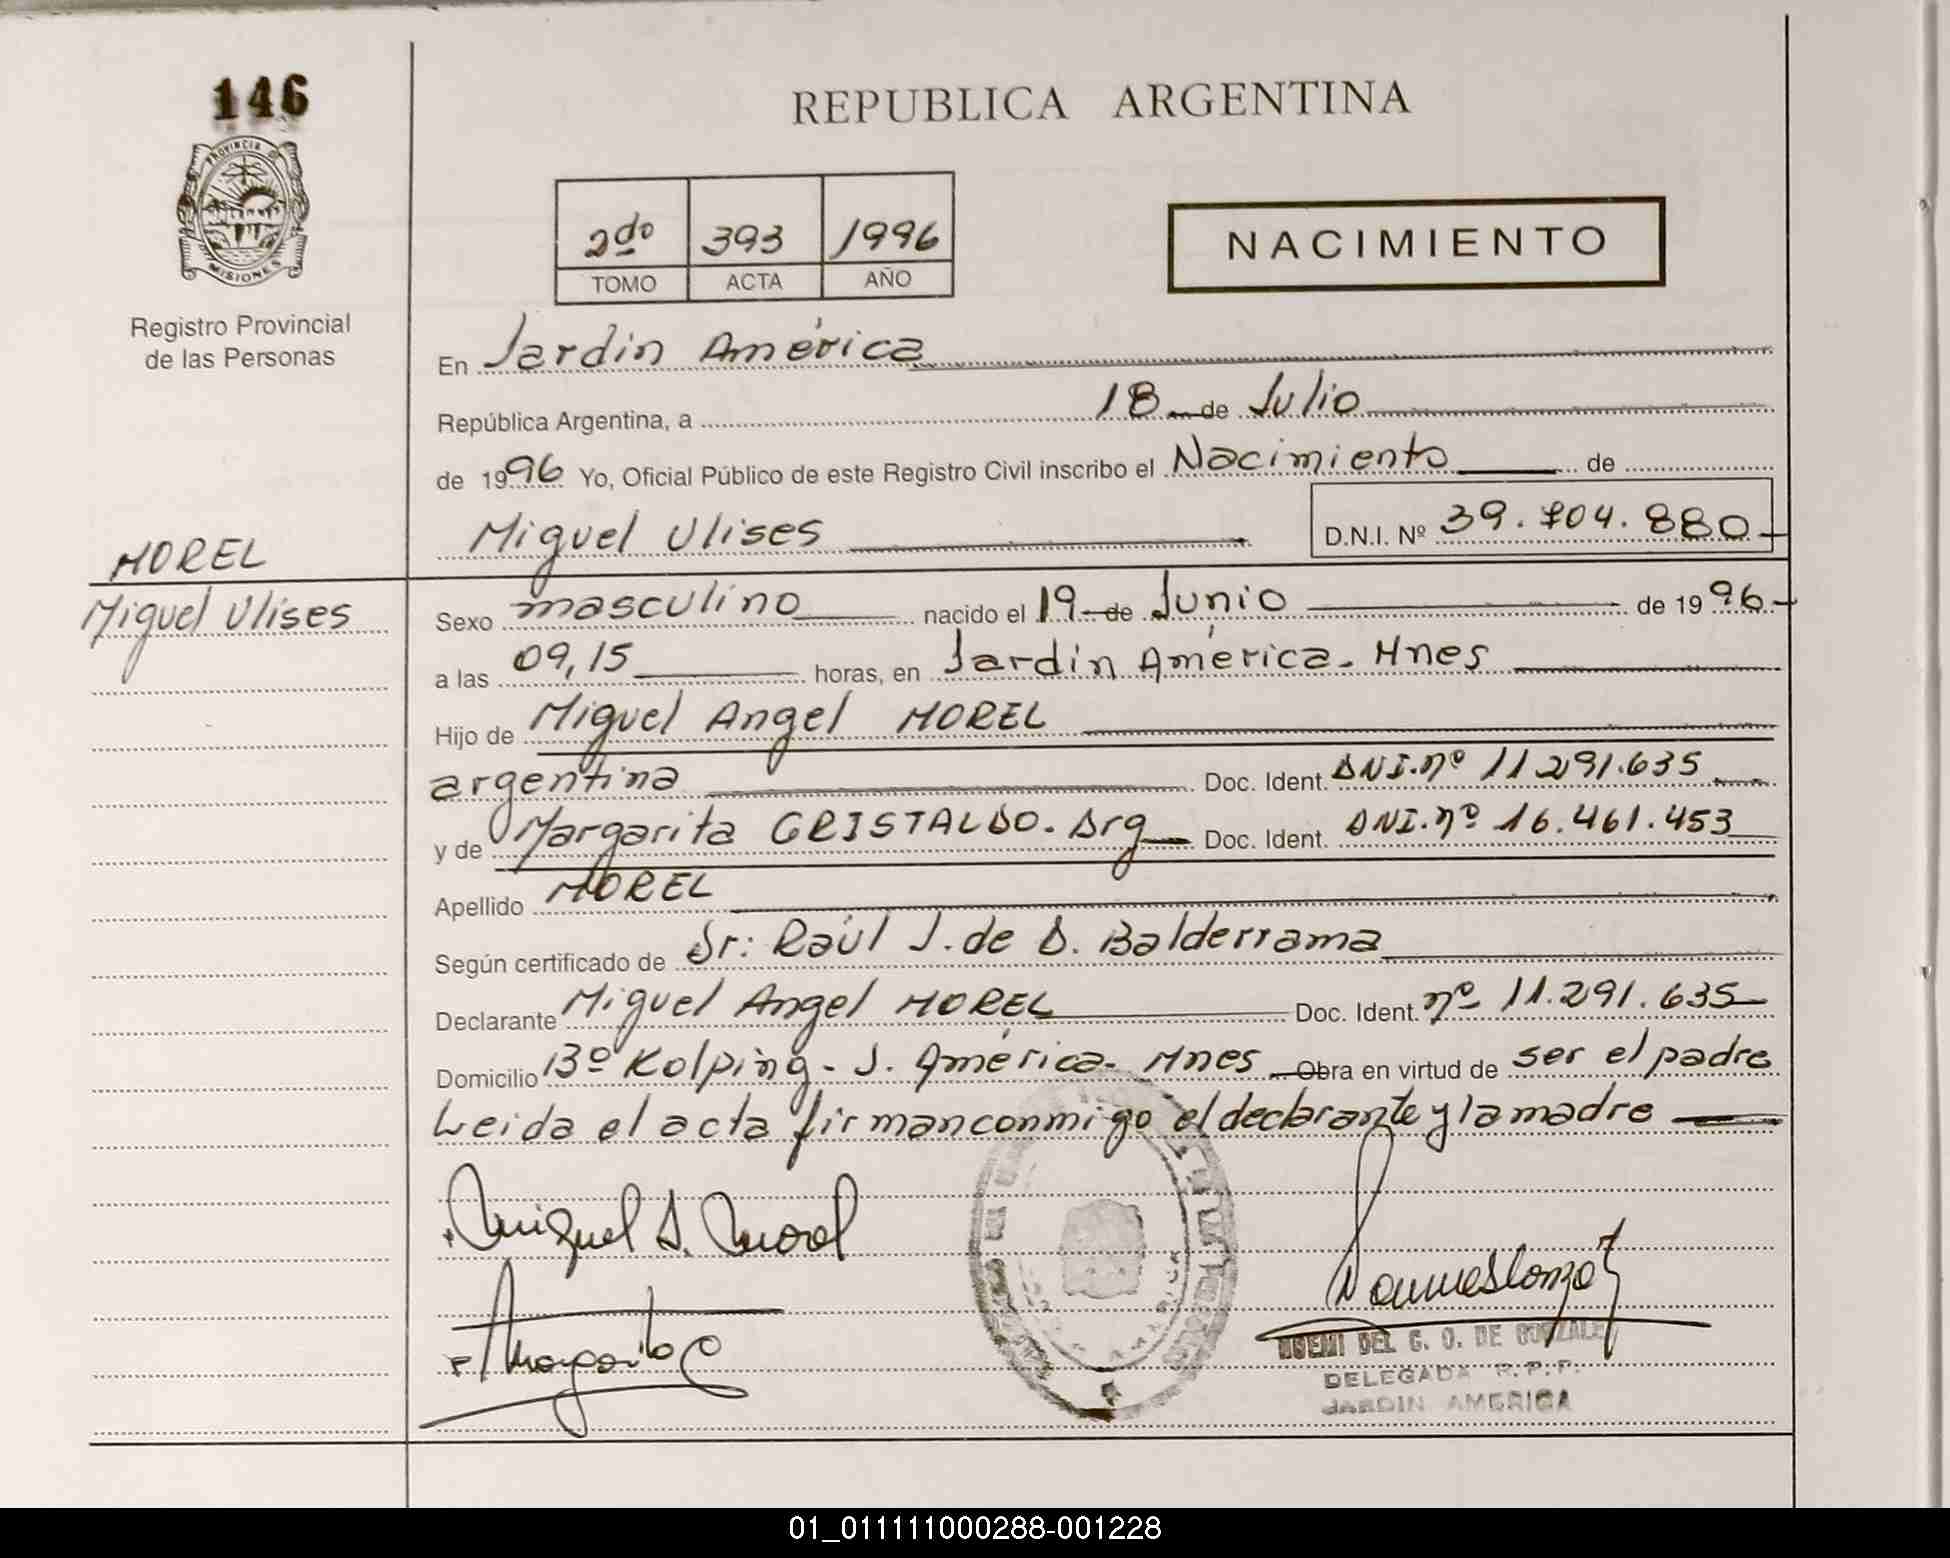 146
PROVINCIA DE
MISIONES
Registro Provincial
de las Personas
REPUBLICA ARGENTINA
2do 393 1996
TOMO ACTA AÑO
NACIMIENTO
En Jardín América
República Argentina, a 18 de Julio
de 1996 Yo, Oficial Público de este Registro Civil inscribo el Nacimiento de
Miguel Ulises D.N.I. Nº 39.704.880
MOREL
Miguel Ulises
Sexo masculino nacido el 19 de Junio de 1996
a las 09,15 horas, en Jardín América. Mnes
Hijo de Miguel Angel MOREL
argentina Doc. Ident. DNI.nº 11.291.635
y de Margarita CRISTALDO. Arg Doc. Ident. DNI.nº 16.461.453
Apellido MOREL
Según certificado de Dr: Raúl J. de D. Balderrama
Declarante Miguel Angel MOREL Doc. Ident. nº 11.291.635
Domicilio Bº Kolping - J. América. Mnes Obra en virtud de ser el padre
Leida el acta firman conmigo el declarante y la madre
Miguel A. Morel
Margarita C
NOEMI DEL C. O. DE GONZALEZ
DELEGADA R.P.P.
JARDIN AMERICA
01_011111000288-001228